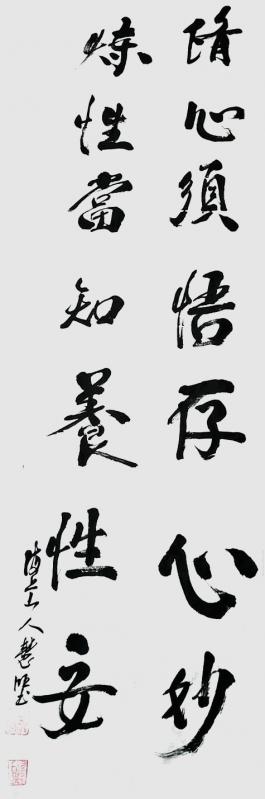 脩心須悟存心妙
煉性當知養性安
山人慧